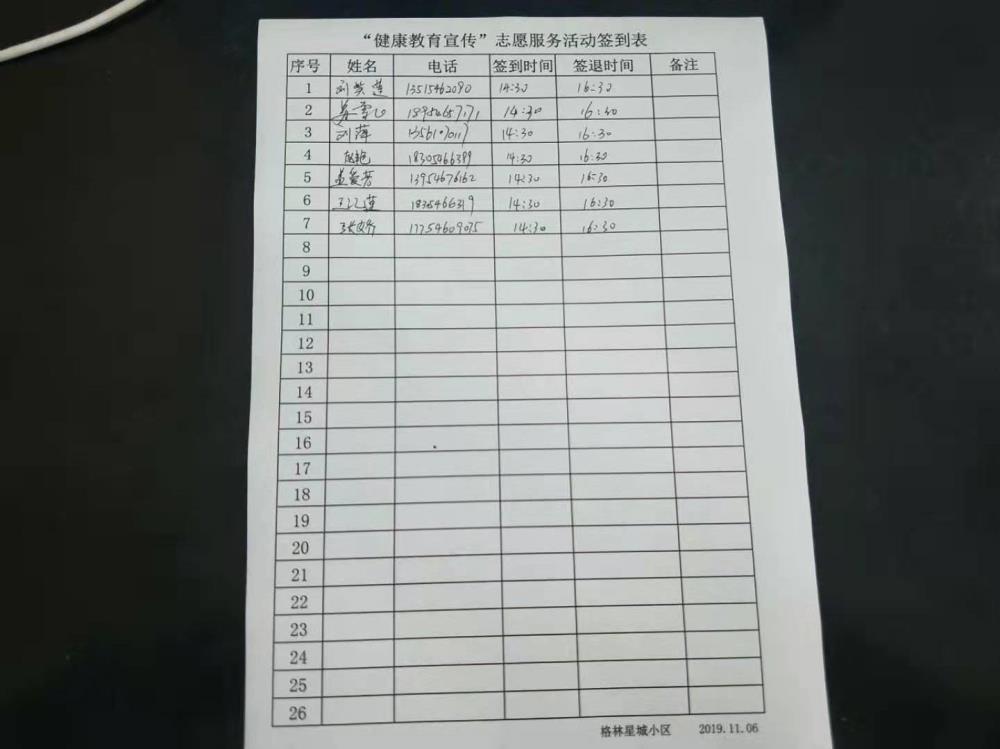 “健康教育宣传”志愿服务活动签到表
序号 姓名 电话 签到时间 签退时间 备注
1 刘英莲 13515462090 14:30 16:30
2 14:30 16:30
3 刘萍 14:30 16:30
4 18305466389 14:30 16:30
5 13954676162 14:30 16:30
6 14:30 16:30
7 17754609035 14:30 16:30
8
9
10
11
12
13
14
15
16
17
18
19
20
21
22
23
24
25
26
格林星城小区 2019.11.06